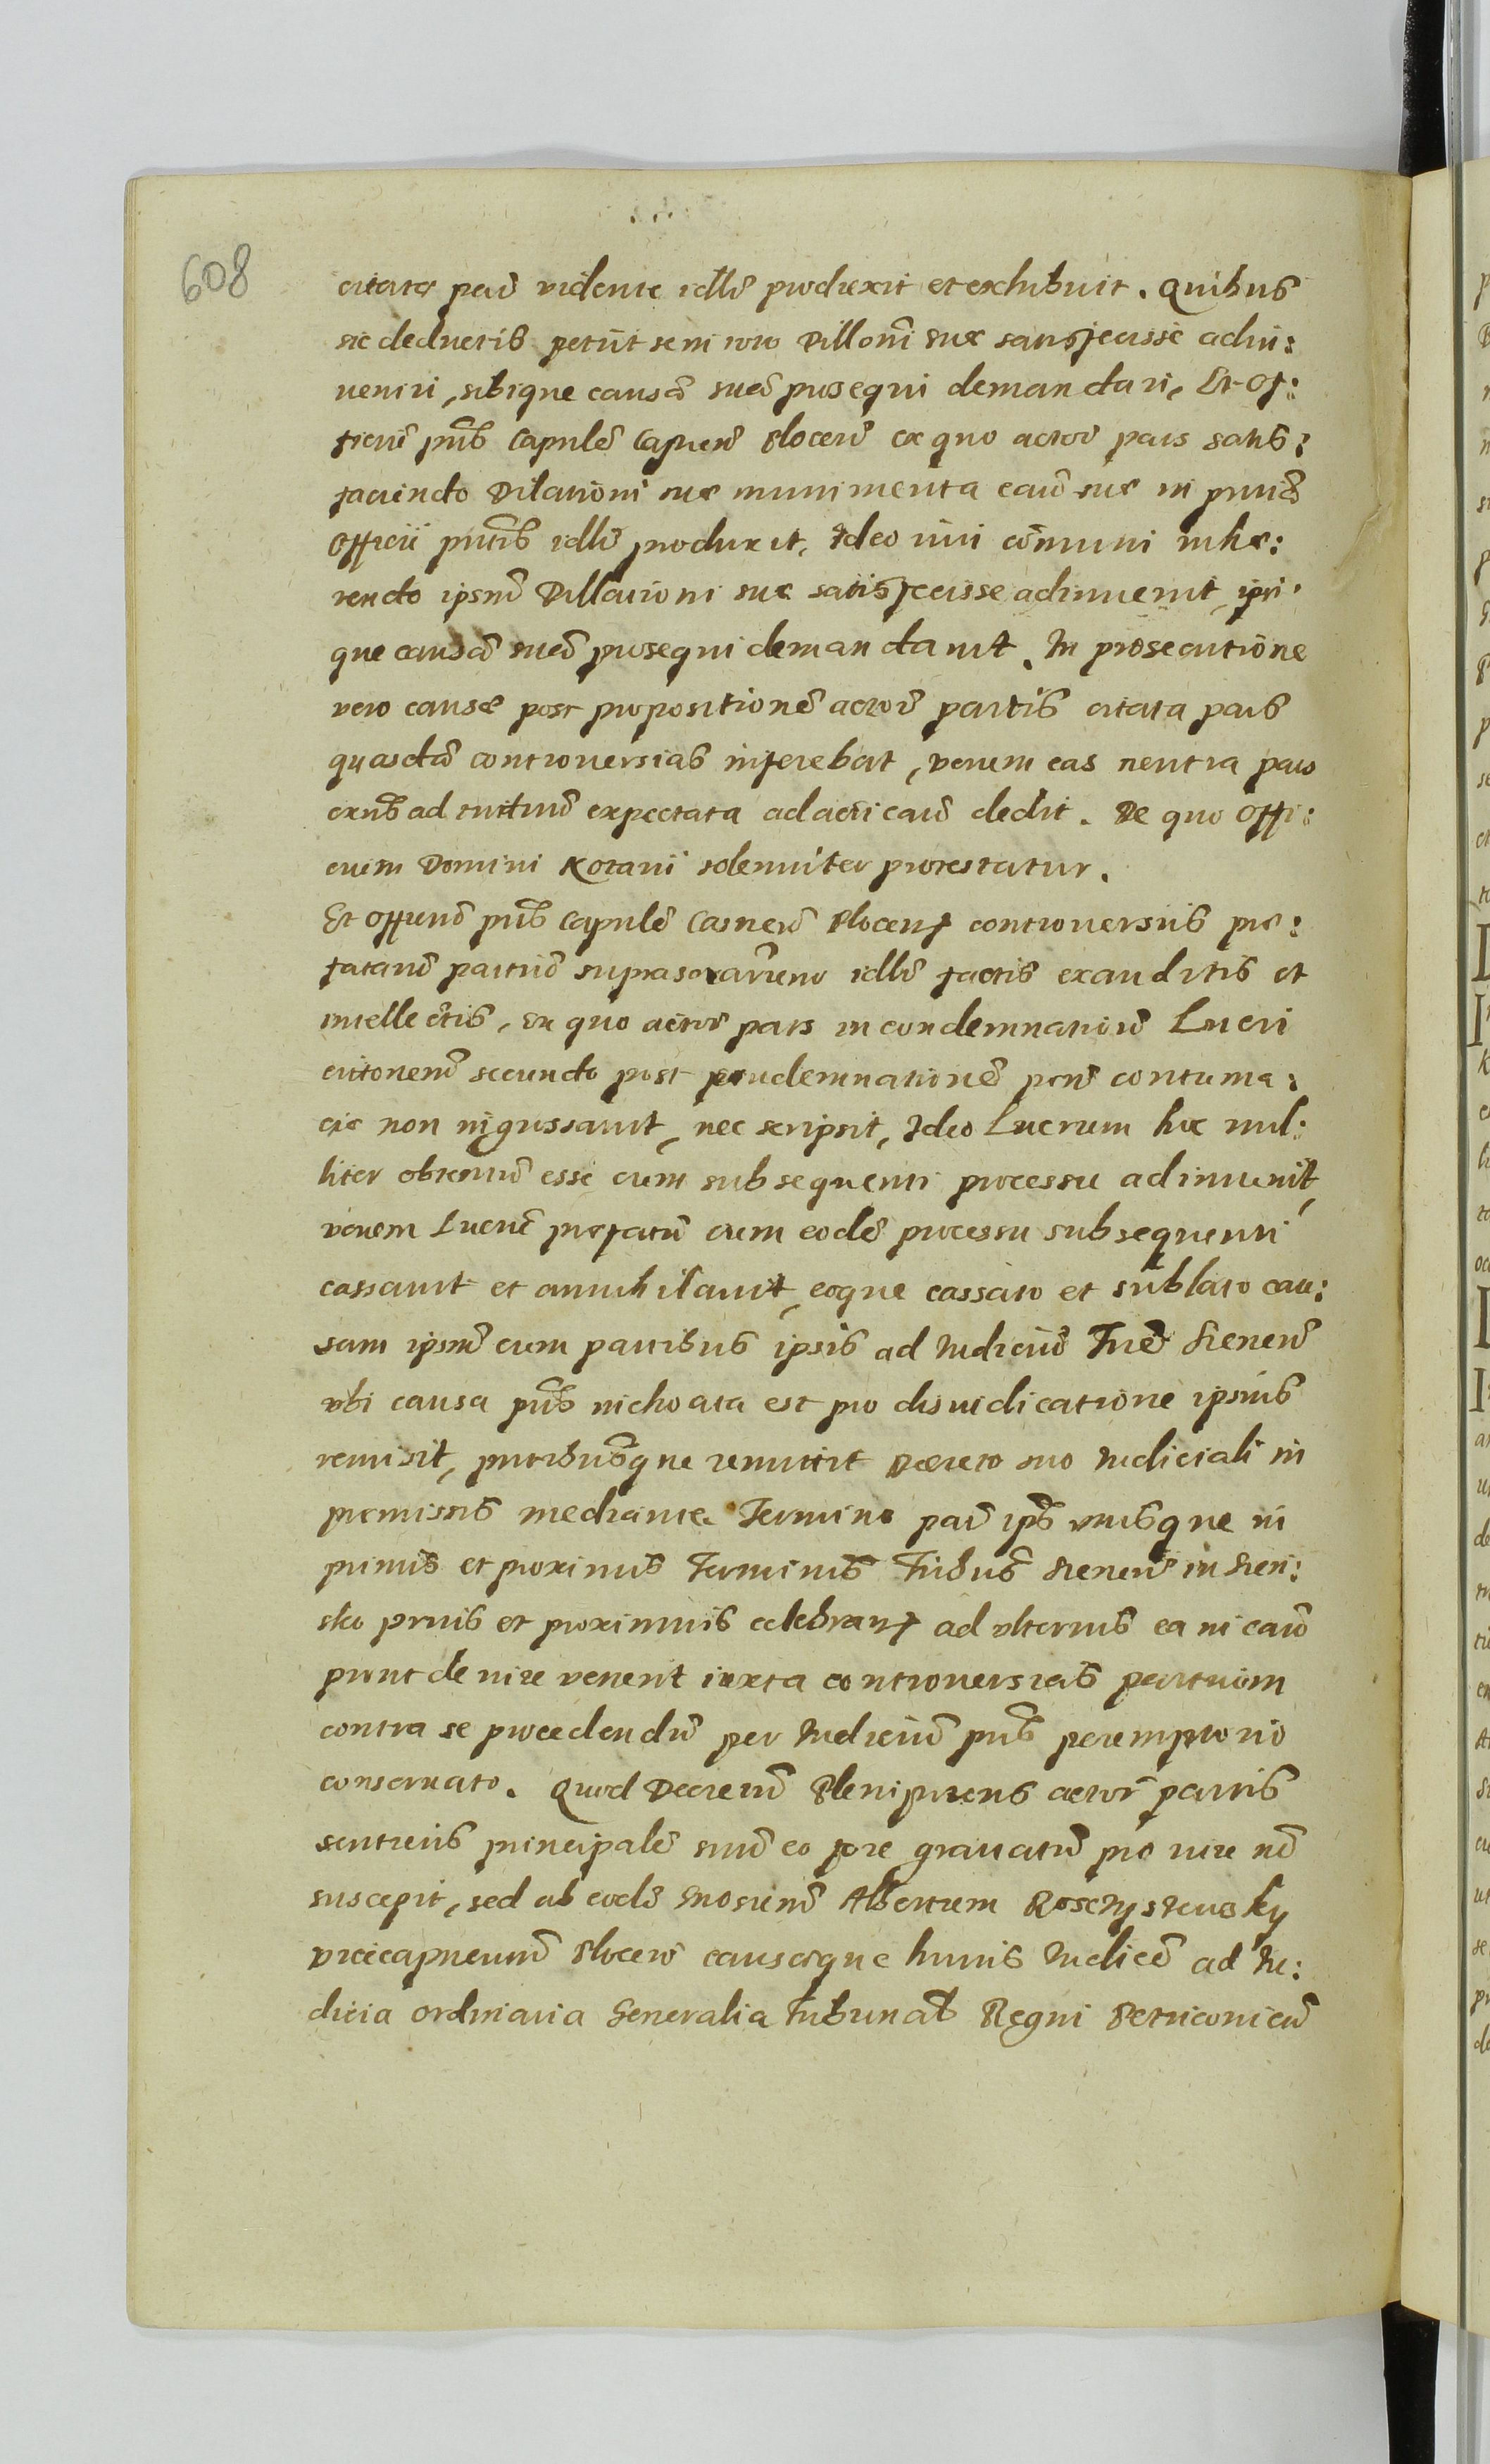 608
citatæ parte vidente idllr produxit et exhibuit. Quibus
sic deductis petiit se in toto Dillonī suæ satisfecisse adin:
ueniri, sibique causā suā prosequi demandari, Et Of:
ficiū pns Capnle Capnen Plocen ex quo actor pars satis:
faciendo Dilationi suæ munimenta caus suæ in pntia
Officii pntis idllr produxit, Ideo iuri comuni inhæ:
rendo ipsm Dillationi suæ satisfecisse adinuenit, ipsi
que causā suā prosequi demandauit. In prosecutione
vero causæ post propositionē actor partis citata pars
quasdā controuersias inferebat, verum eas neutra pars
ex nb ad tuitiu expectata ad acti caus dedit. De quo Offi:
cium Domini Notarii solenniter protestatur.
Et Officiū pns Capnle Casnen Plocen controuersiis præ:
fatarū partiū idllr factis exauditis et
intellectis, ex quo actor pars in condemnatione Lucri
citionem secundo post condemnationē pene contuma:
ciæ non ingrossauit, nec scripsit, Ideo Lucrum hic nul:
liter obtentū esse cum subsequenti processu adinuenit,
verum Lucrū præfatū cum eodē processu subsequenti
cassauit et annihilauit, eoque cassato et sublato cau:
sam ipsm cum partibus ipsis ad Iudiciū Trre Sienen
vbi causa pns inchoata est pro disiudicatione ipsius
remisit, partibusque remittit Decreto suo Iudiciali in
præmissis mediante. Termino part ips vtrisque in
primis et proximis Terminis Tribus Sienen in Sien:
sko primis et proximius celebran ad vlterius ea in caus
prout de iure venerit iuxta controuersias partium
contra se procedendū per Iudiciū pns peremptorio
conseruato. Quod Decretū Plenipotens actor partis
sentiens principalē suū eo fore grauatū pro iure nō
suscepit, sed ab eodē Albertum
vicecapneum Plocen causæque huius Iudicē ad Iu:
dicia ordinaria Generalia Tribunal Regni Petricouien